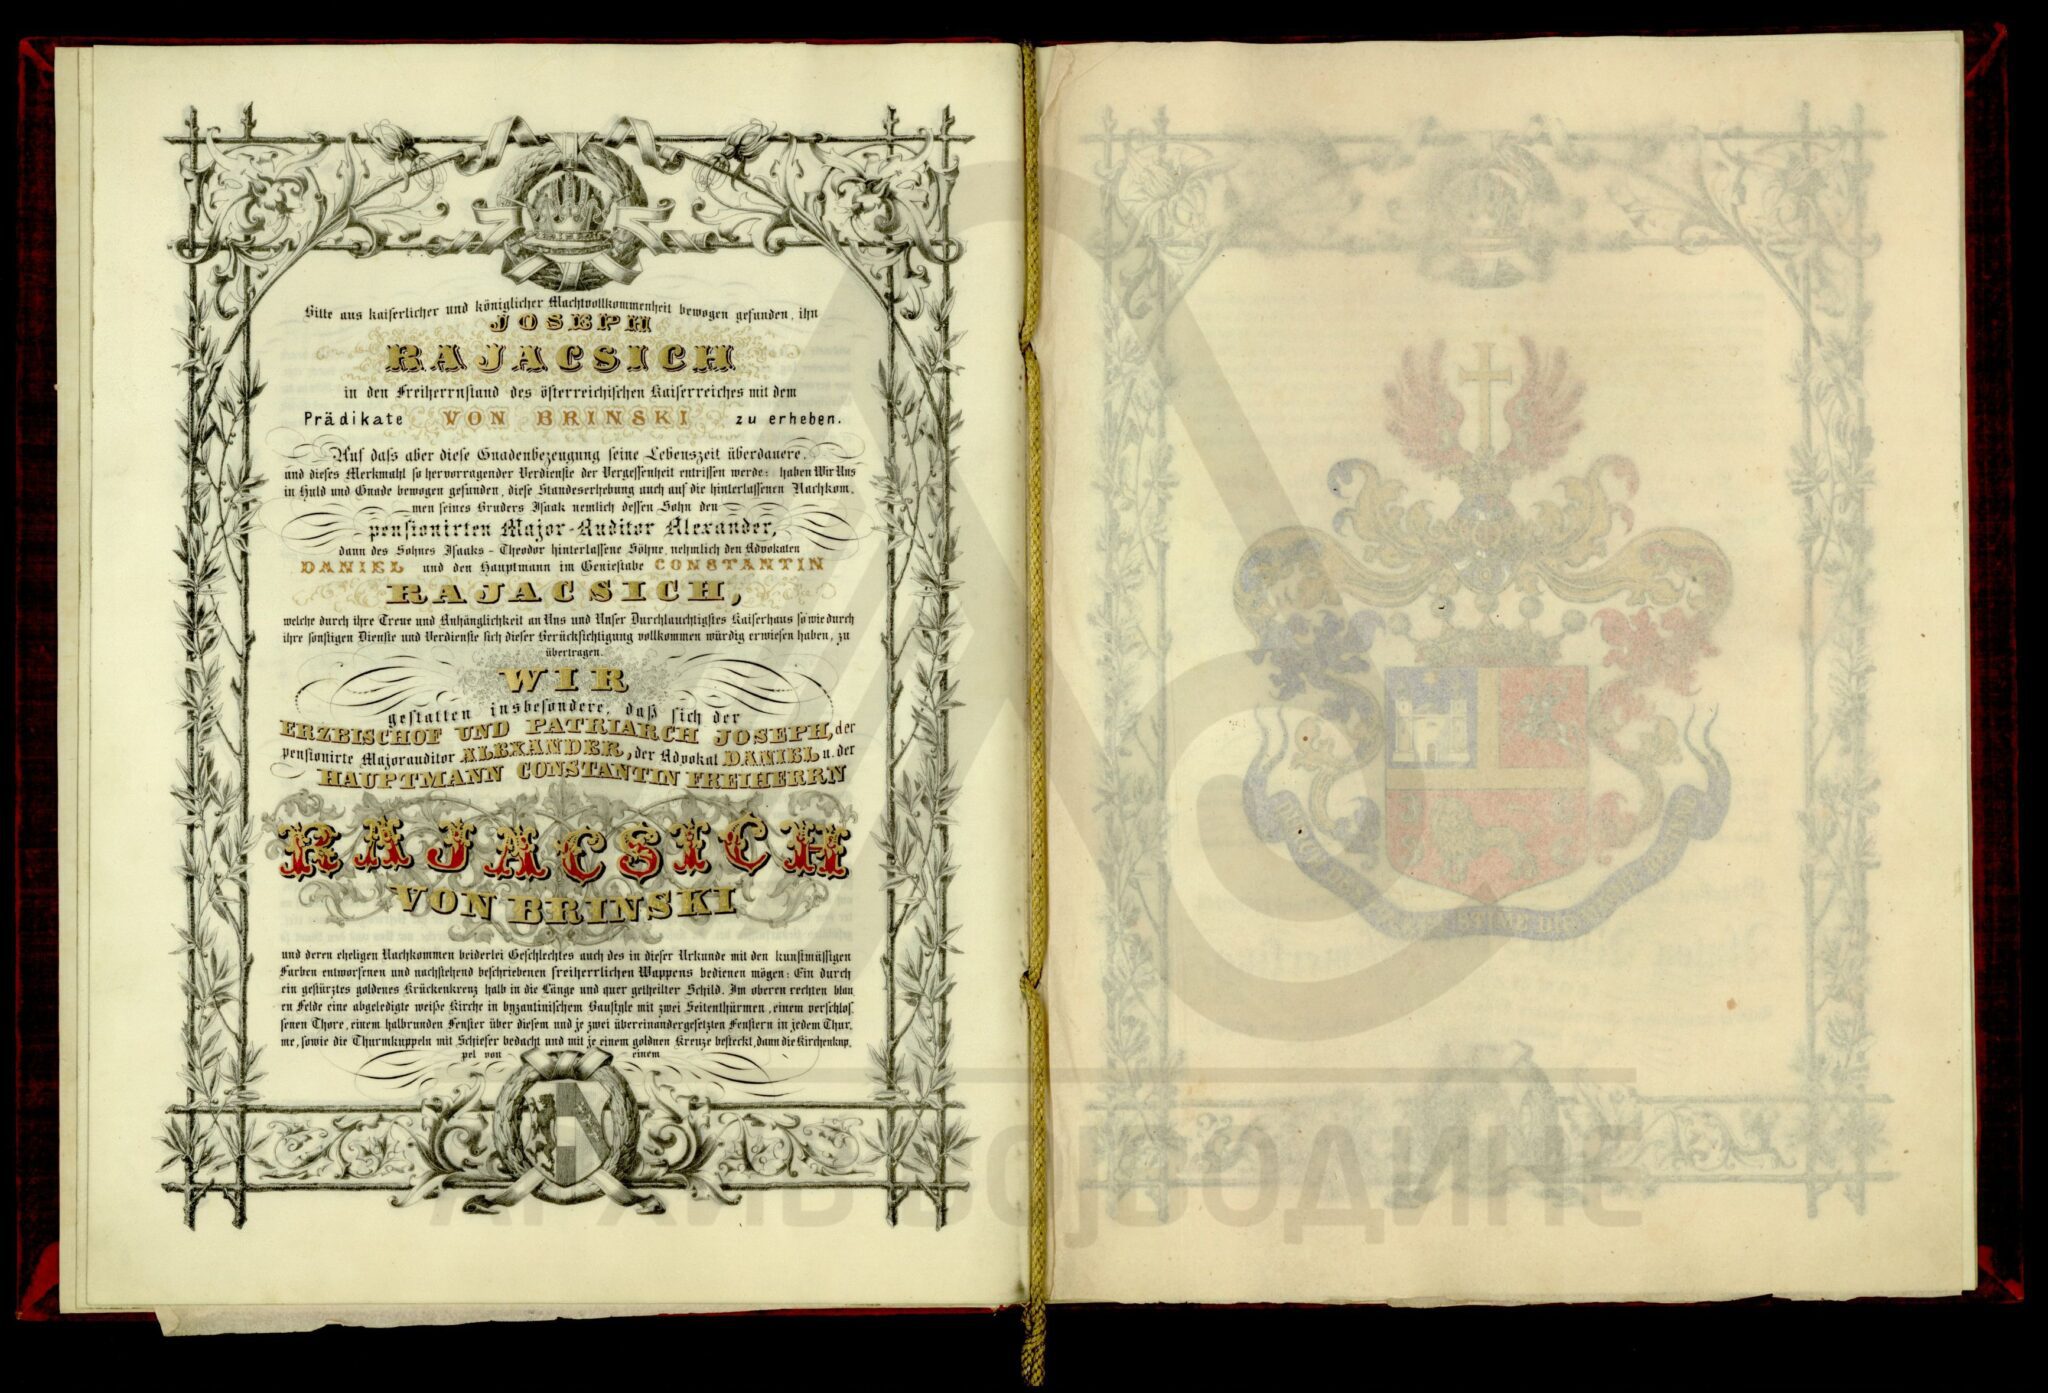 Bitte aus kaiserlicher und königlicher Machtvollkommenheit bewogen gefunden, ihn
JOSEPH
RAJACSICH
in den Freiherrnstand des österreichischen Kaiserreiches mit dem
Prädikate VON BRINSKI zu erheben.
Auf dass aber diese Gnadenbezeugung seine Lebenszeit überdauere,
und dieses Merkmahl so hervorragender Verdienste der Vergessenheit entrissen werde; haben Wir Uns
in Huld und Gnade bewogen gefunden, diese Standeserhebung auch auf die hinterlassenen Nachkom-
men seines Bruders Isaak nemlich dessen Sohn den
pensionirten Major-Auditor Alexander,
dann des Sohnes Isaaks - Theodor hinterlassene Söhne, nehmlich den Advokaten
DANIEL und den Hauptmann im Geniestabe CONSTANTIN
RAJACSICH,
welche durch ihre Treue und Anhänglichkeit an Uns und Unser Durchlauchtigstes Kaiserhaus so wie durch
ihre sonstigen Dienste und Verdienste sich dieser Berücksichtigung vollkommen würdig erwiesen haben, zu
übertragen.
WIR
gestatten insbesondere, daß sich der
ERZBISCHOF UND PATRIARCH JOSEPH, der
pensionirte Majorauditor ALEXANDER, der Advokat DANIEL u. der
HAUPTMANN CONSTANTIN FREIHERRN
RAJACSICH
VON BRINSKI
und deren eheligen Nachkommen beiderlei Geschlechtes auch des in dieser Urkunde mit den kunstmässigen
Farben entworfenen und nachstehend beschriebenen freiherrlichen Wappens bedienen mögen: Ein durch
ein gestürztes goldenes Krückenkreuz halb in die Länge und quer getheilter Schild. Im oberen rechten blau-
en Felde eine abgeledigte weiße Kirche in byzantinischem Baustyle mit zwei Seitenthürmen, einem verschlos-
senen Thore, einem halbrunden Fenster über diesem und je zwei übereinandergesetzten Fenstern in jedem Thur-
me, sowie die Thurmkuppeln mit Schiefer bedacht und mit je einem goldnen Kreuze besteckt, dann die Kirchenkup-
pel von einem
АРХИВ ВОЈВОДИНЕ